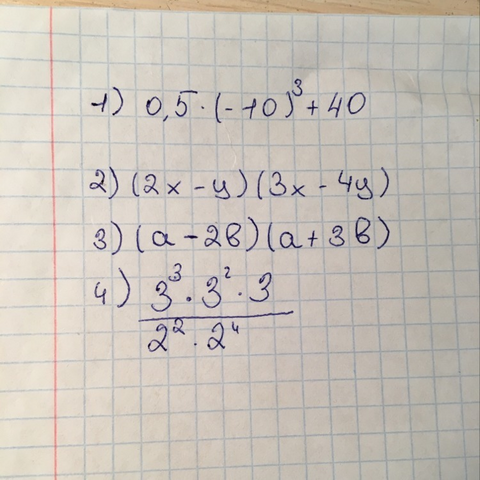 1) 0,5 · (-10)³ + 40
2) (2x - y)(3x - 4y)
3) (a - 2b)(a + 3b)
4) 3³ · 3² · 3
2² · 2⁴